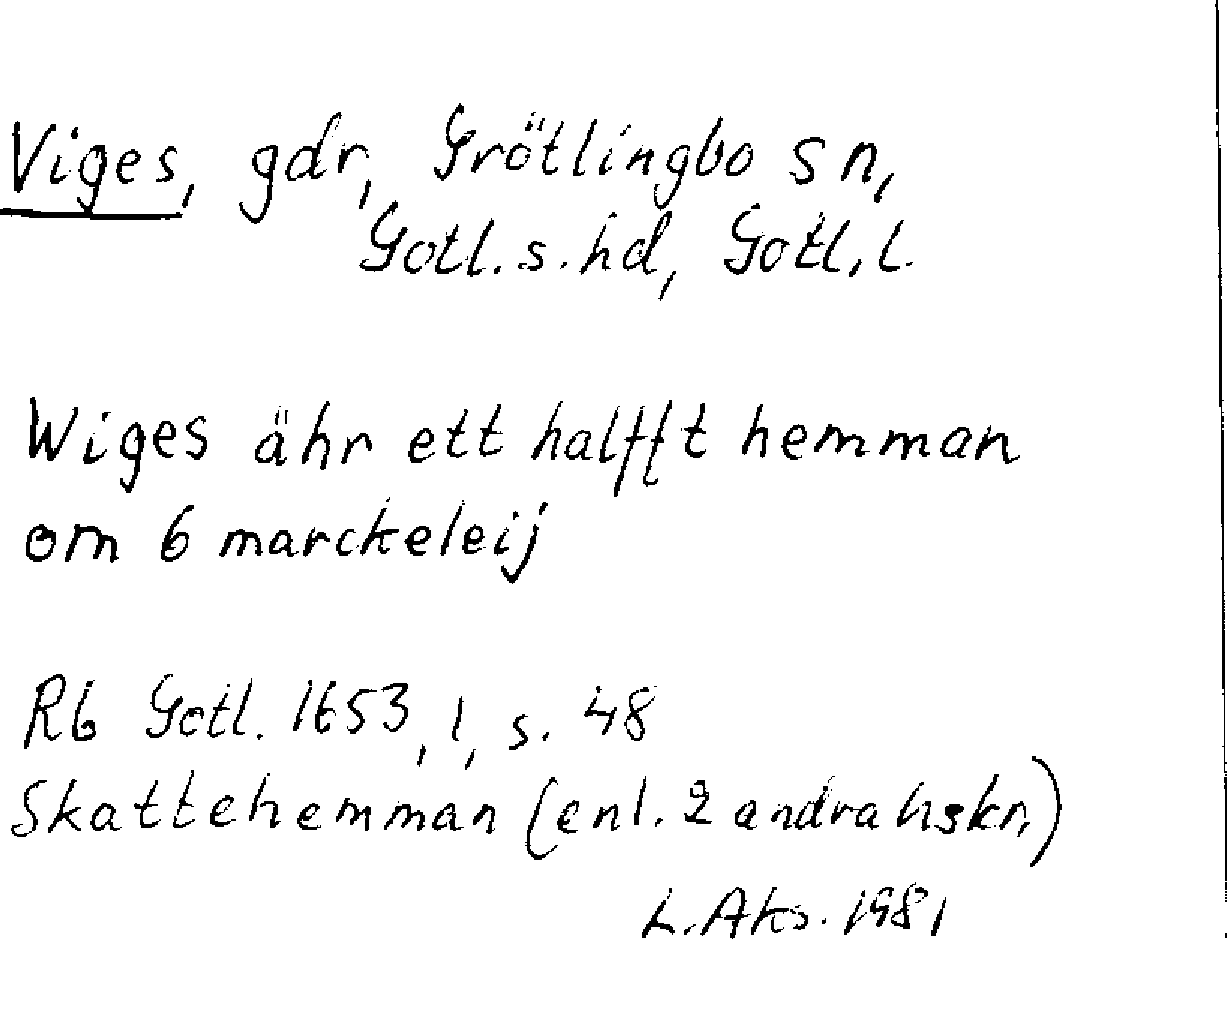 Viges, gdr, Grötlingbo sn,
Gotl. s. hd, Gotl. l.
Wiges ähr ett halfft hemman
om 6 marckeleij
Rb Gotl. 1653, 1, s. 48
Skattehemman (enl. 2 andra hskr.)
L. Aks. 1981